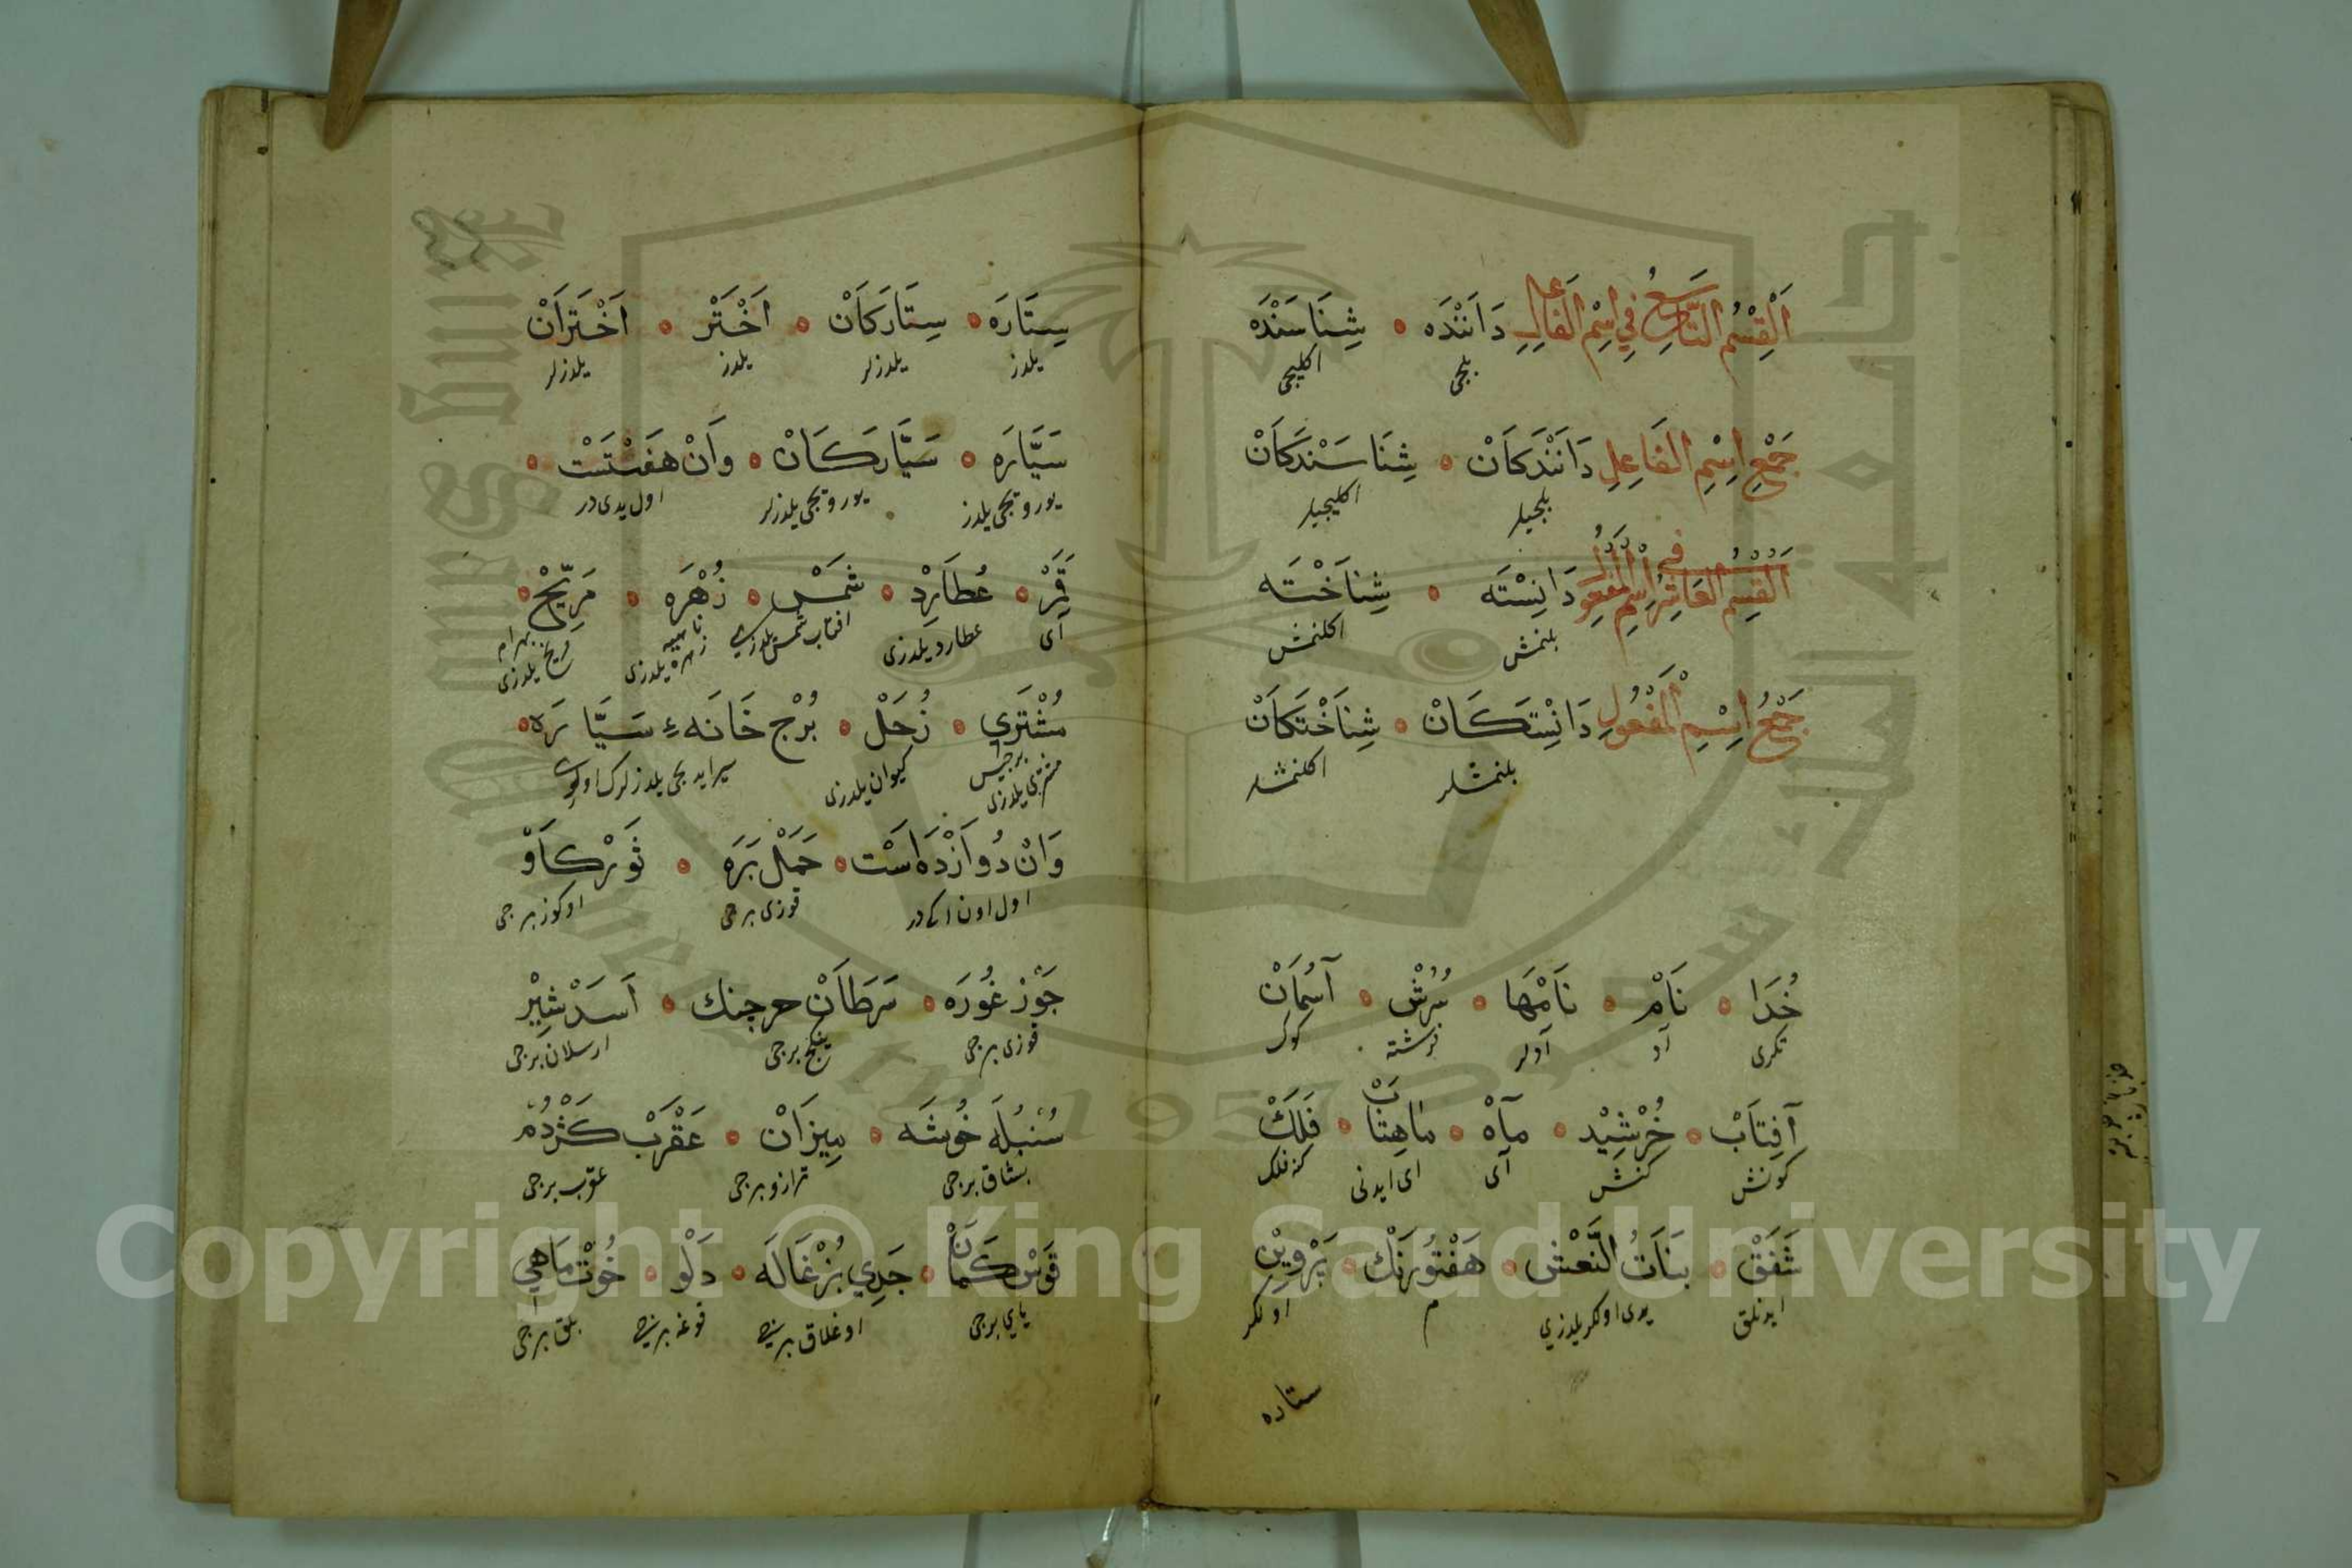 اَلْقِسْمُ التَّاسِعُ فِي اِسْمِ الْفَاعِلِ دَانَنْدَه • شِنَاسَنْدَه
بلجی اكلیجی
جَمْعِ اِسْمِ الْفَاعِلِ دَانَنْدَكَانْ • شِنَاسَنْدَكَانْ
بلجیلر اكلیجیلر
اَلْقِسْمُ الْعَاشِرُ فِي اِسْمِ الْمَفْعُولِ دَانِسْتَه • شِنَاخْتَه
بلنمش اكلنمش
جَمْعُ اِسْمِ الْمَفْعُولِ دَانِسْتَكَانْ • شِنَاخْتَكَانْ
بلنمشلر اكلنمشلر
خُدَا • نَامْ • نَامْهَا • سُرُشْ • آسْمَانْ
تكری آد آدلر فرشته كوك
آفِتَابْ • خُرْشِيْد • مَآهْ • مَاهِتَابْ • فَلَكْ
كونش كنش آی ای ایدنی
شَفَقْ • بَنَاتُ النَّعْش • هَفْتُورَنْك • پَرْوِيْن
یدی اولكر یلدزی م اولكر
ستاره
سِتَارَه • سِتَارَكَانْ • اَخْتَرْ • اَخْتَرَانْ
یلدز یلدزلر یلدز یلدزلر
سَيَّارَه • سَيَّارَكَانْ • وَانْ هَفْتَسْت •
یوروبجی یلدز یوروبجی یلدزلر اول یدی در
قَمَرْ • عُطَارِدْ • شَمْس • زُهْرَه • مَرِّيْخ •
آی عطارد یلدزی افتاب شمس یلدزی زهره یلدزی بهرام مریخ یلدزی
مُشْتَرِي • زُحَلْ • بُرْج خَانَهءِ سَيَّارَه •
برجیس مشتری یلدزی كیوان یلدزی سیر ایدیجی یلدزلرك اوی
وَانْ دُوَازْدَه اسْت • حَمَلْ بَرَه • ثَوْر كَاوْ
اول اون اكی در قوزی برجی اوكوز برجی
جَوْز غُورَه • سَرَطَانْ خرچنك • اَسَدْ شِيْر
قوزی برجی ینكج برجی ارسلان برجی
سُنْبُلَه خُوشَه • مِيزَانْ • عَقْرَبْ كَژْدُمْ
بشاق برجی ترازو برجی عقرب برجی
قَوْس كَمَانْ • جَدِي بُزْغَالَه • دَلْو • حُوْتْ مَاهِي
یای برجی اوغلاق برجی قوغه برجی بلق برجی
Copyright © King Saud University
1957